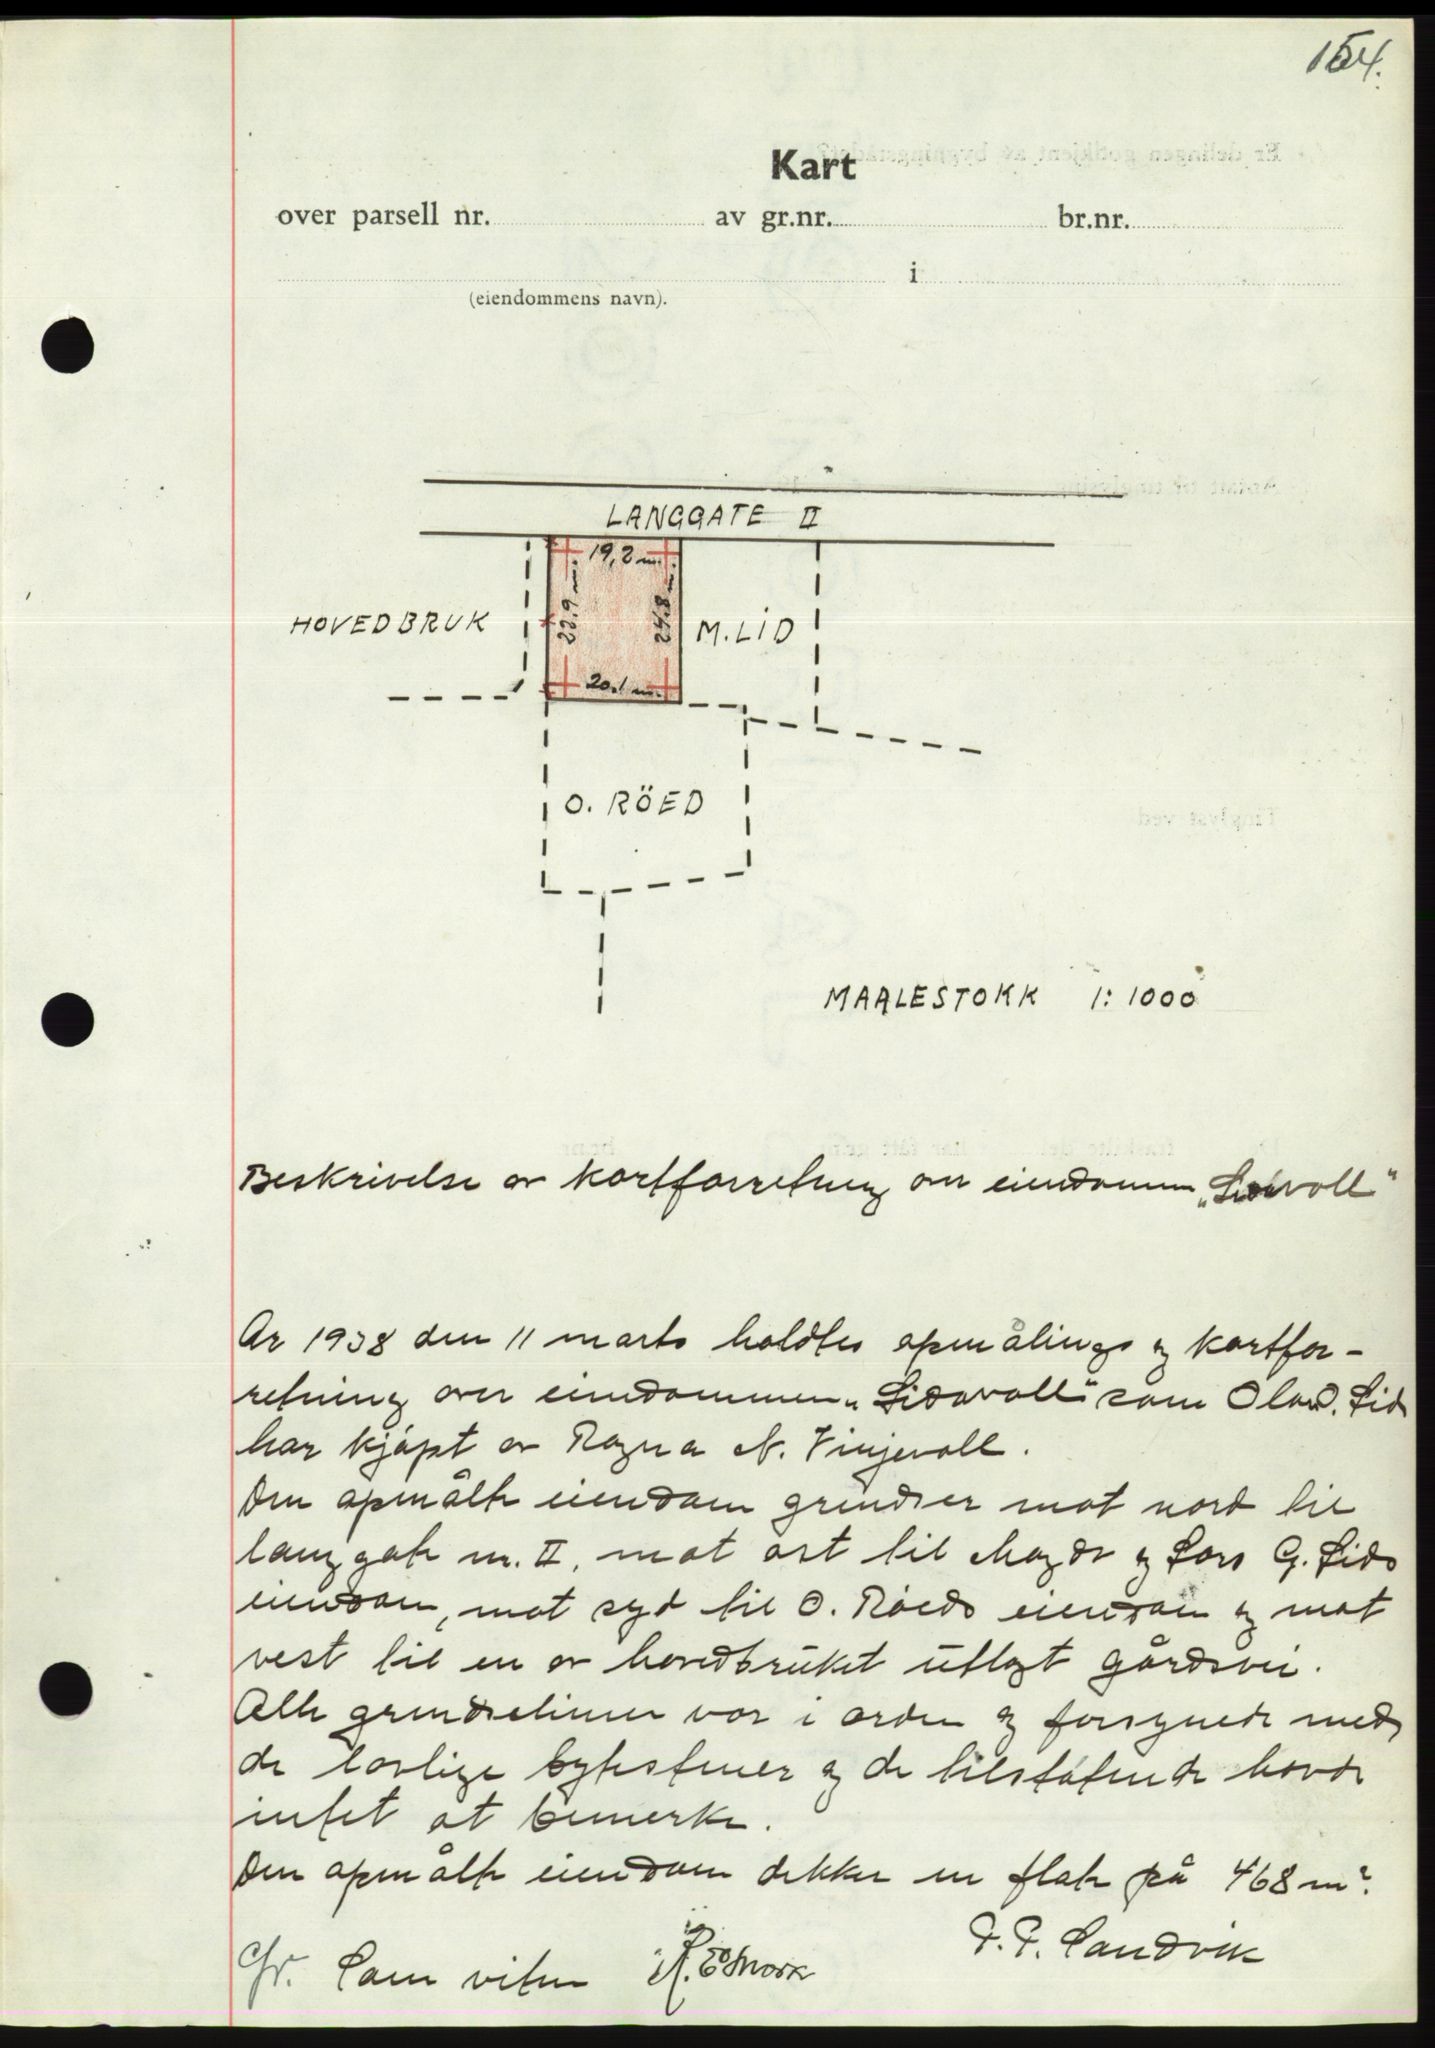 154.
Kart
over parsell nr. av gr.nr. br.nr.
i
(eiendommens navn).
LANGGATE II
19,2 m.
22.9 m.
24.8 m.
HOVEDBRUK
M. LID
20.1 m.
O. RÖED
MAALESTOKK 1:1000
Beskrivelse av kartforretning over eiendommen "Lidavoll"
År 1938 den 11 marts holdtes opmålings og kartfor-
retning over eiendommen "Lidavoll" som Olav D. Lid
har kjøpt av Ragna N. Vinjevoll.
Den opmålte eiendom grendser mot nord til
langgate nr. II, mot øst til Magda og Lars G. Lids
eiendom, mot syd til O. Röeds eiendom og mot
vest til en av hovedbruket utlagt gårdsvei.
Alle grendselinier var i orden og forsynede med
de lovlige bytestener og de tilstøtende havde
intet at bemerke.
Den opmålte eiendom dekker en flate på 468 m².
P. P. Sandvik
Som vitne